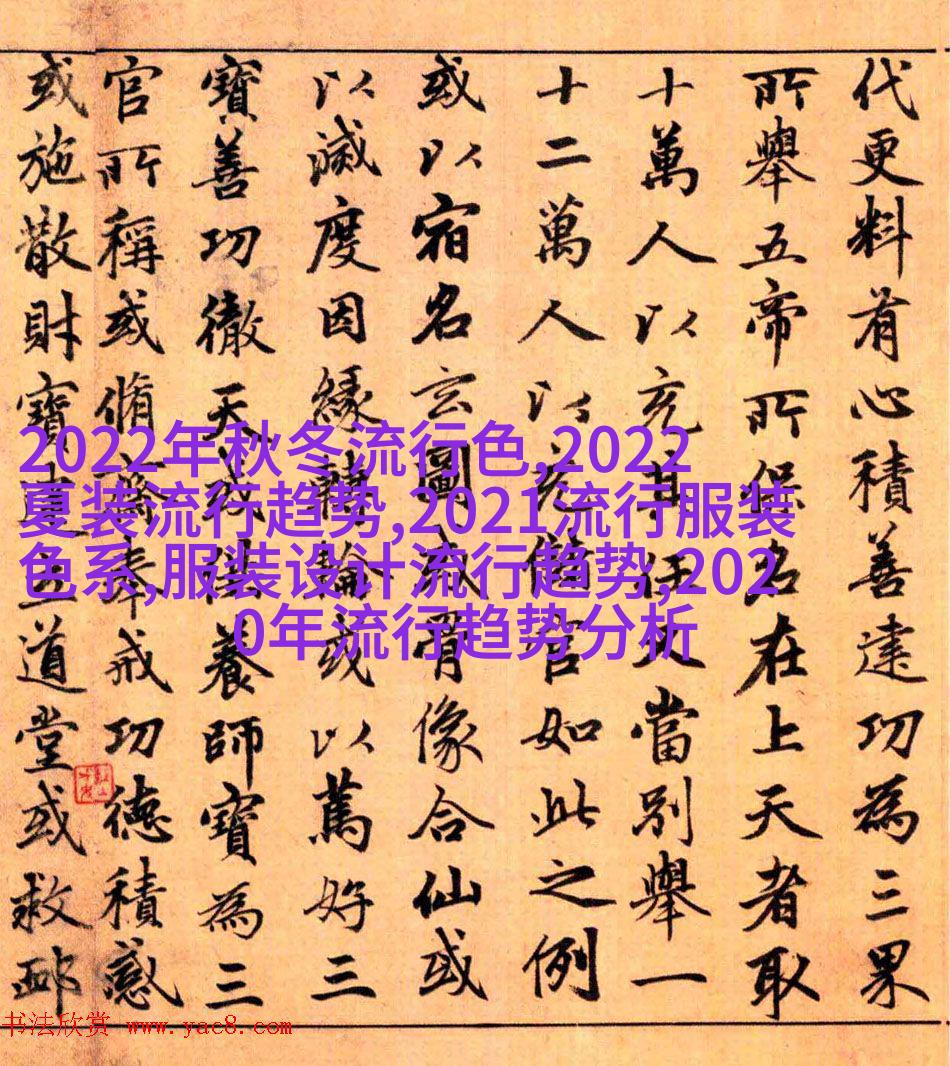 代更料有心積善達功為三果
所舉五帝所保名在上天者取
十萬人以充其任又當別舉一
十二萬人以充儲官如此之例
或以宿名玄圖或骨像合仙或
以滅度因緣轉輪或以篤好三
寶善功徹天或供養師寶為三
官所稱或脩齋奉戒功德積感
或施散財寶建立道堂或救卹
2022年秋冬流行色,2022
夏装流行趋势,2021流行服装
色系,服装设计流行趋势,202
0年流行趋势分析
书法欣赏 www.yac8.com